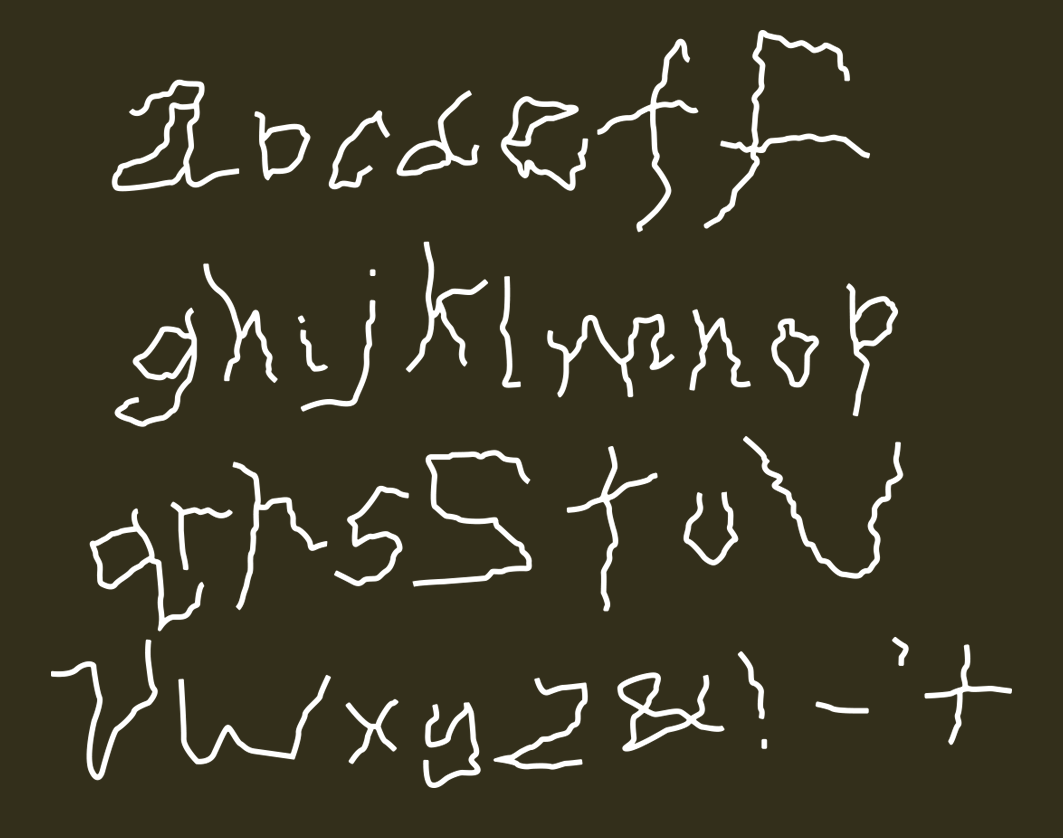 abcdefF
ghijklmnop
qrhsStuV
VWxyz&!-'+